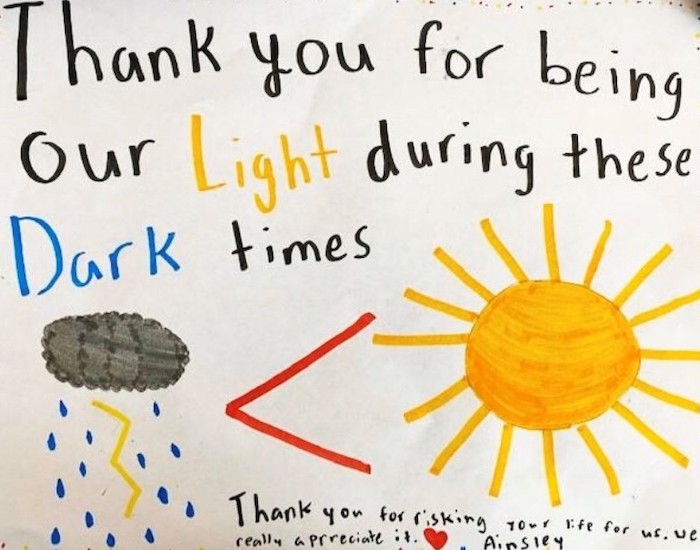 Thank you for being
our Light during these
Dark times
Thank you for risking your life for us. we
really apprreciate it.
Ainsley